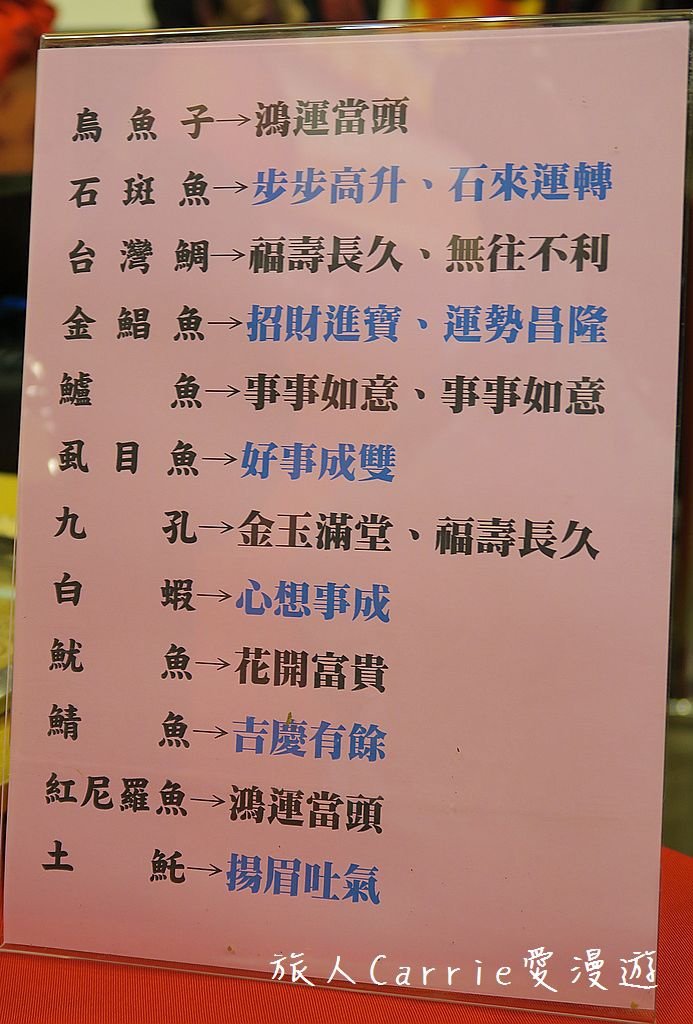 烏魚子→鴻運當頭
石斑魚→步步高升、石來運轉
台灣鯛→福壽長久、無往不利
金鯧魚→招財進寶、運勢昌隆
鱸魚→事事如意、事事如意
虱目魚→好事成雙
九孔→金玉滿堂、福壽長久
白蝦→心想事成
魷魚→花開富貴
鯖魚→吉慶有餘
紅尼羅魚→鴻運當頭
土魠→揚眉吐氣
旅人Carrie愛漫遊